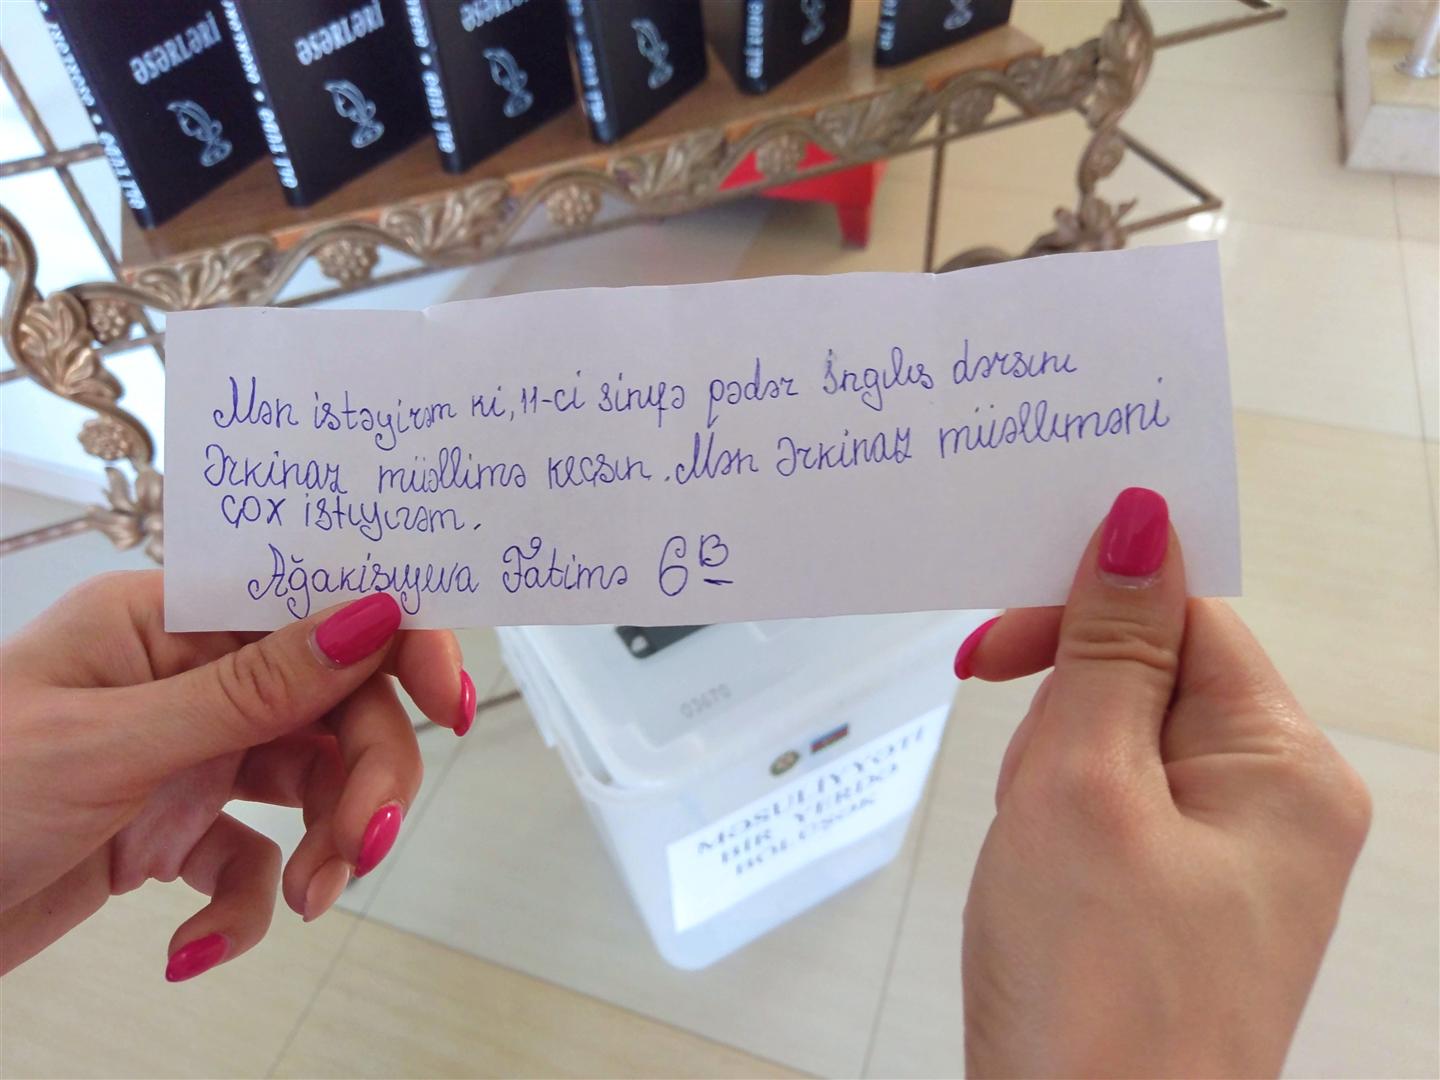 ƏSƏRLƏRİ
ƏSƏRLƏRİ
Mən istəyirəm ki, 11-ci sinifə pədər İngilis dərsini
Ərkinaz müəllimə keçsin. Mən Ərkinaz müəlliməni
çox istiyirəm.
Ağakişiyeva Fatimə 6B
03670
MƏSULİYYƏTİ
BİR YERDƏ
BÖLÜŞƏK